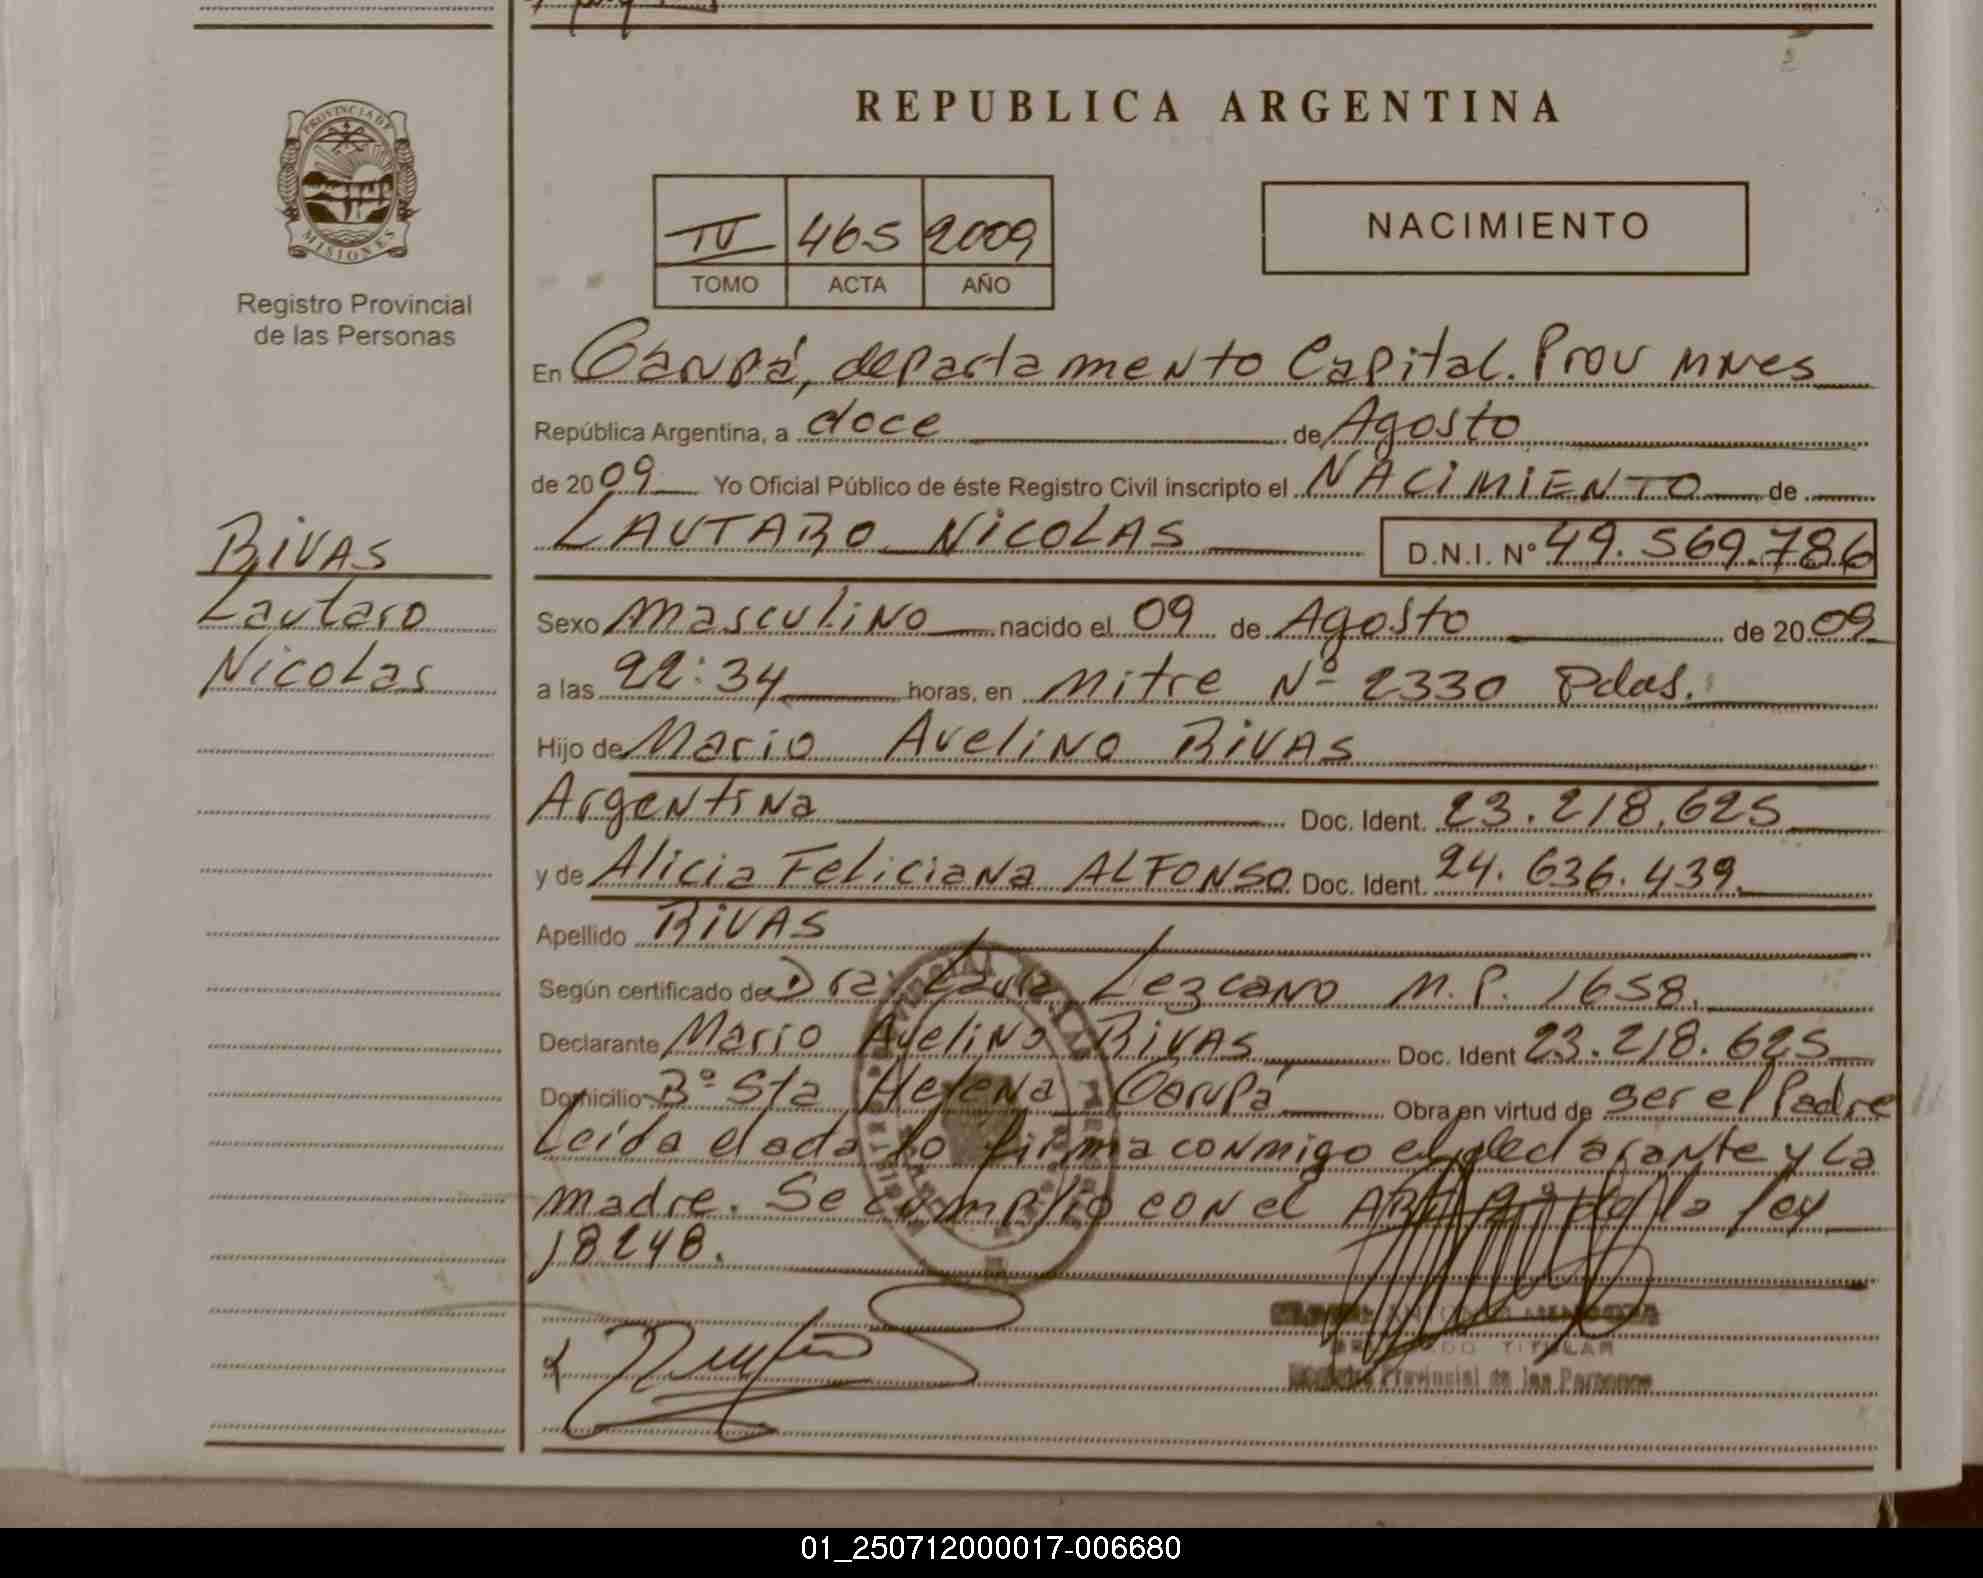 REPUBLICA ARGENTINA
PROVINCIA DE
MISIONES
Registro Provincial
de las Personas
IV 465 2009
TOMO ACTA AÑO
NACIMIENTO
En Garupá, departamento Capital. Prov Mnes
República Argentina, a doce de Agosto
de 2009 Yo Oficial Público de éste Registro Civil inscripto el NACIMIENTO de
LAUTARO NICOLAS D.N.I. Nº 49.569.786
RIVAS
Lautaro
Nicolas
Sexo Masculino nacido el 09 de Agosto de 2009
a las 22:34 horas, en Mitre Nº 2330 Pdas.
Hijo de Mario Avelino RIVAS
Argentina Doc. Ident. 23.218.625
y de Alicia Feliciana ALFONSO Doc. Ident. 24.636.439
Apellido RIVAS
Según certificado de Dra. Laura Lezcano M.P. 1658.
Declarante Mario Avelino RIVAS Doc. Ident 23.218.625
Domicilio Bº Sta Helena Garupá Obra en virtud de ser el Padre
Leída el acta lo firma conmigo el declarante y la
madre. Se cumplio con el ART de la ley
18248.
TITULAR
Registro Provincial de las Personas
01_250712000017-006680